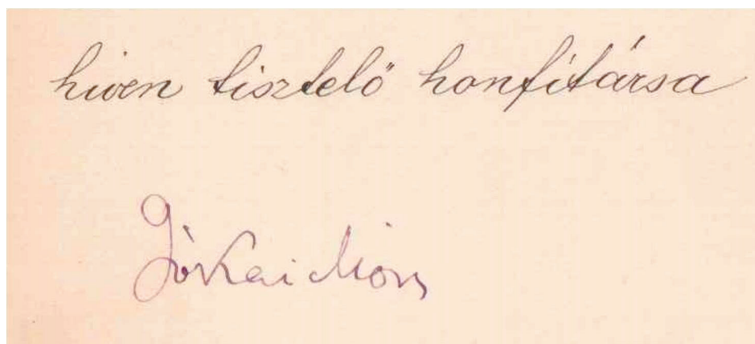 hiven tisztelő honfitársa
Jókai Mór